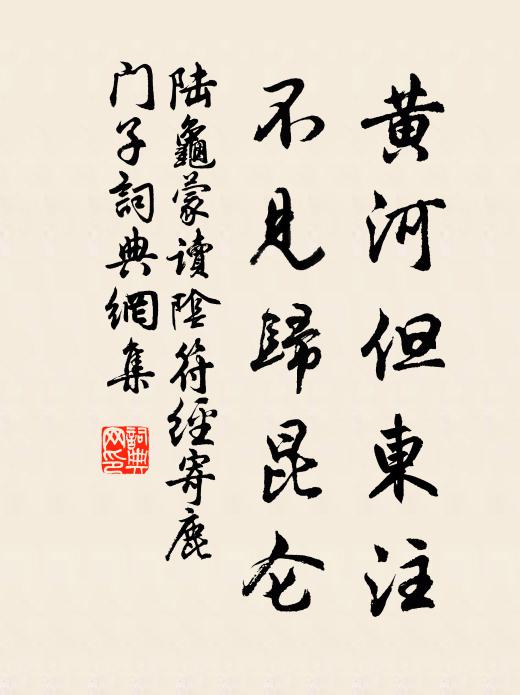 黄河但東注
不見歸昆仑
陆龜蒙读陰符經寄鹿
门子詞典網集
詞典
网印